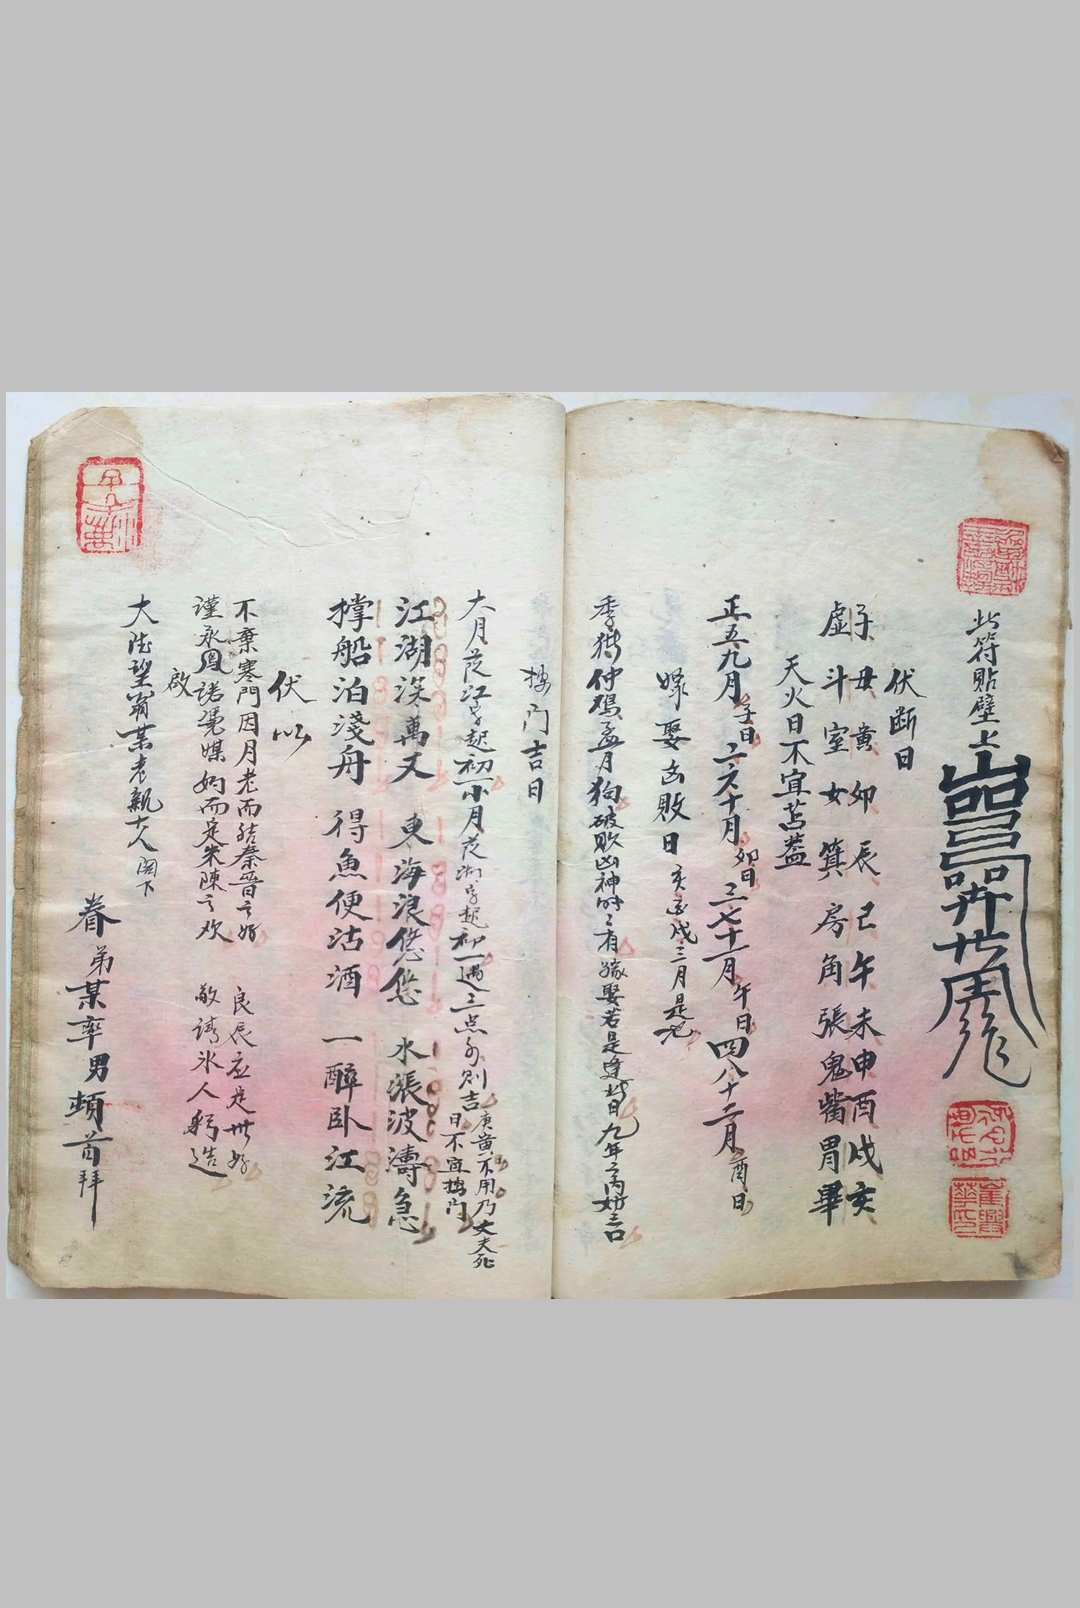 此符貼壁上
伏断日
子丑黄卯辰巳午未申酉戌亥
虚斗室女箕房角張鬼觜胃畢
天火日不宜苫蓋
正五九月子日二六十月卯日三七十一月午日四八十二月酉日
嫁娶凶敗日
季猪仲鸡孟月狗破敗凶神時時有嫁娶若是逢此日九年
門吉日
大月從江字起初一小月從湖字起初一遇三点水则吉
庚黄不用乃丈夫死
日不宜門
江湖深萬丈 東海浪悠悠 水漲波濤急
撑船泊淺舟 得魚便沽酒 一醉卧江流
伏以
不棄寒門因月老而結秦晋之好 良辰
謹承鳳諾憑媒妁而定朱陳之欢 敬請氷人躬造
啟
大德望翁某老親大人阁下
眷弟某率男頓首拜